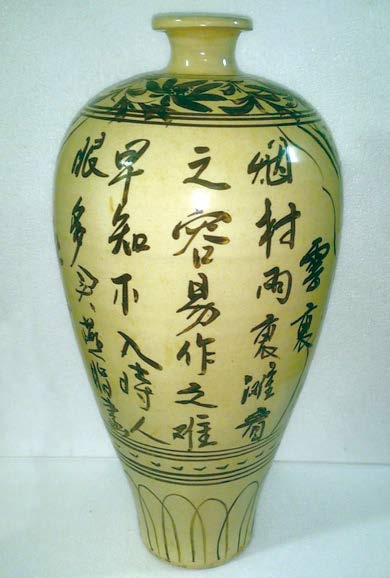 雲裏
烟村雨裏滩看
之容易作之难
早知不入時人
眼多买燕脂畫